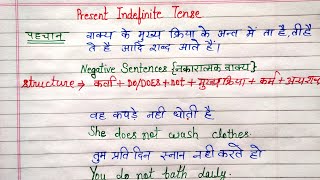 Present Indefinite Tense
पहचान वाक्य के मुख्य क्रिया के अन्त में ता है, ती है
ते है आदि शब्द आते हैं।
Negative Sentences {नकारात्मक वाक्य}
Structure → कर्ता + DO/DOES + not + मुख्य क्रिया + कर्म + अन्य शब्द
वह कपड़े नही धोती है.
She does not wash clothes.
तुम प्रतिदिन स्नान नही करते हो
You do not bath daily.